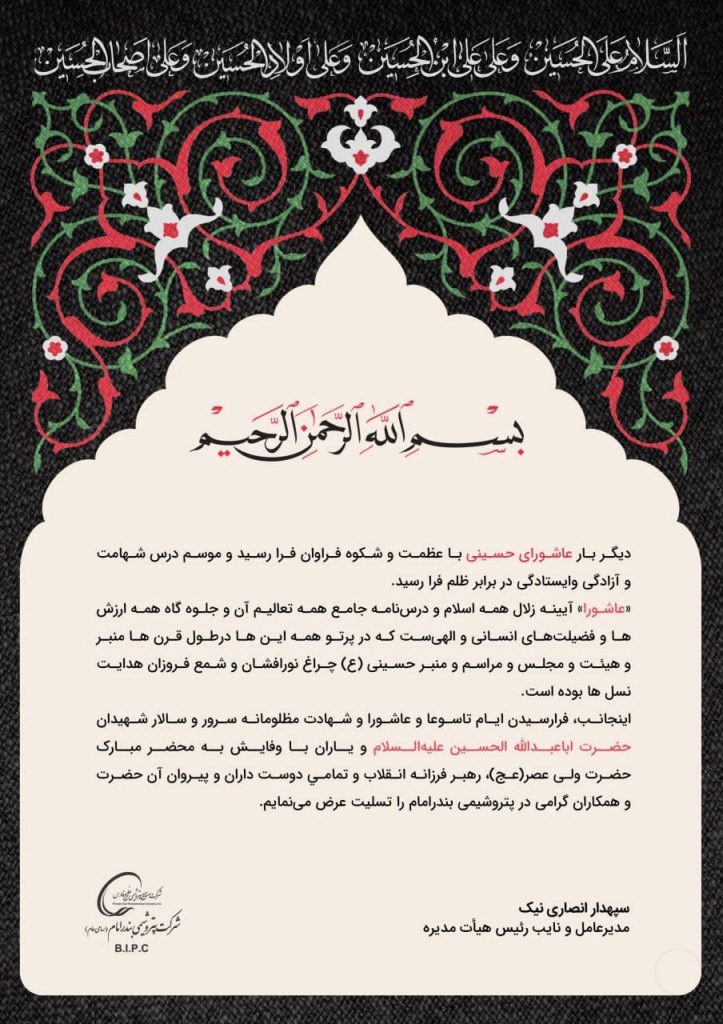 السَّلامُ عَلَی الحُسَین وَعَلی عَلیِ ابْنِ الحُسَین وَعَلی اَولادِ الحُسَین وَعَلی اَصحابِ الحُسَین
بسم الله الرحمن الرحیم
دیگر بار عاشورای حسینی با عظمت و شکوه فراوان فرا رسید و موسم درس شهامت
و آزادگی وایستادگی در برابر ظلم فرا رسید.
«عاشورا» آیینه زلال همه اسلام و درس‌نامه جامع همه تعالیم آن و جلوه گاه همه ارزش
ها و فضیلت‌های انسانی و الهی‌ست که در پرتو همه این ها درطول قرن ها منبر
و هیئت و مجلس و مراسم و منبر حسینی (ع) چراغ نورافشان و شمع فروزان هدایت
نسل ها بوده است.
اینجانب، فرارسیدن ایام تاسوعا و عاشورا و شهادت مظلومانه سرور و سالار شهیدان
حضرت اباعبدالله الحسین علیه‌السلام و یاران با وفایش به محضر مبارک
حضرت ولی عصر(عج)، رهبر فرزانه انقلاب و تمامي دوست داران و پیروان آن حضرت
و همکاران گرامی در پتروشیمی بندرامام را تسلیت عرض می‌نمایم.
سپهدار انصاری نیک
مدیرعامل و نایب رئیس هیأت مدیره
شرکت صنایع پتروشیمی خلیج فارس
شرکت پتروشیمی بندرامام (سهامی عام)
B.I.P.C